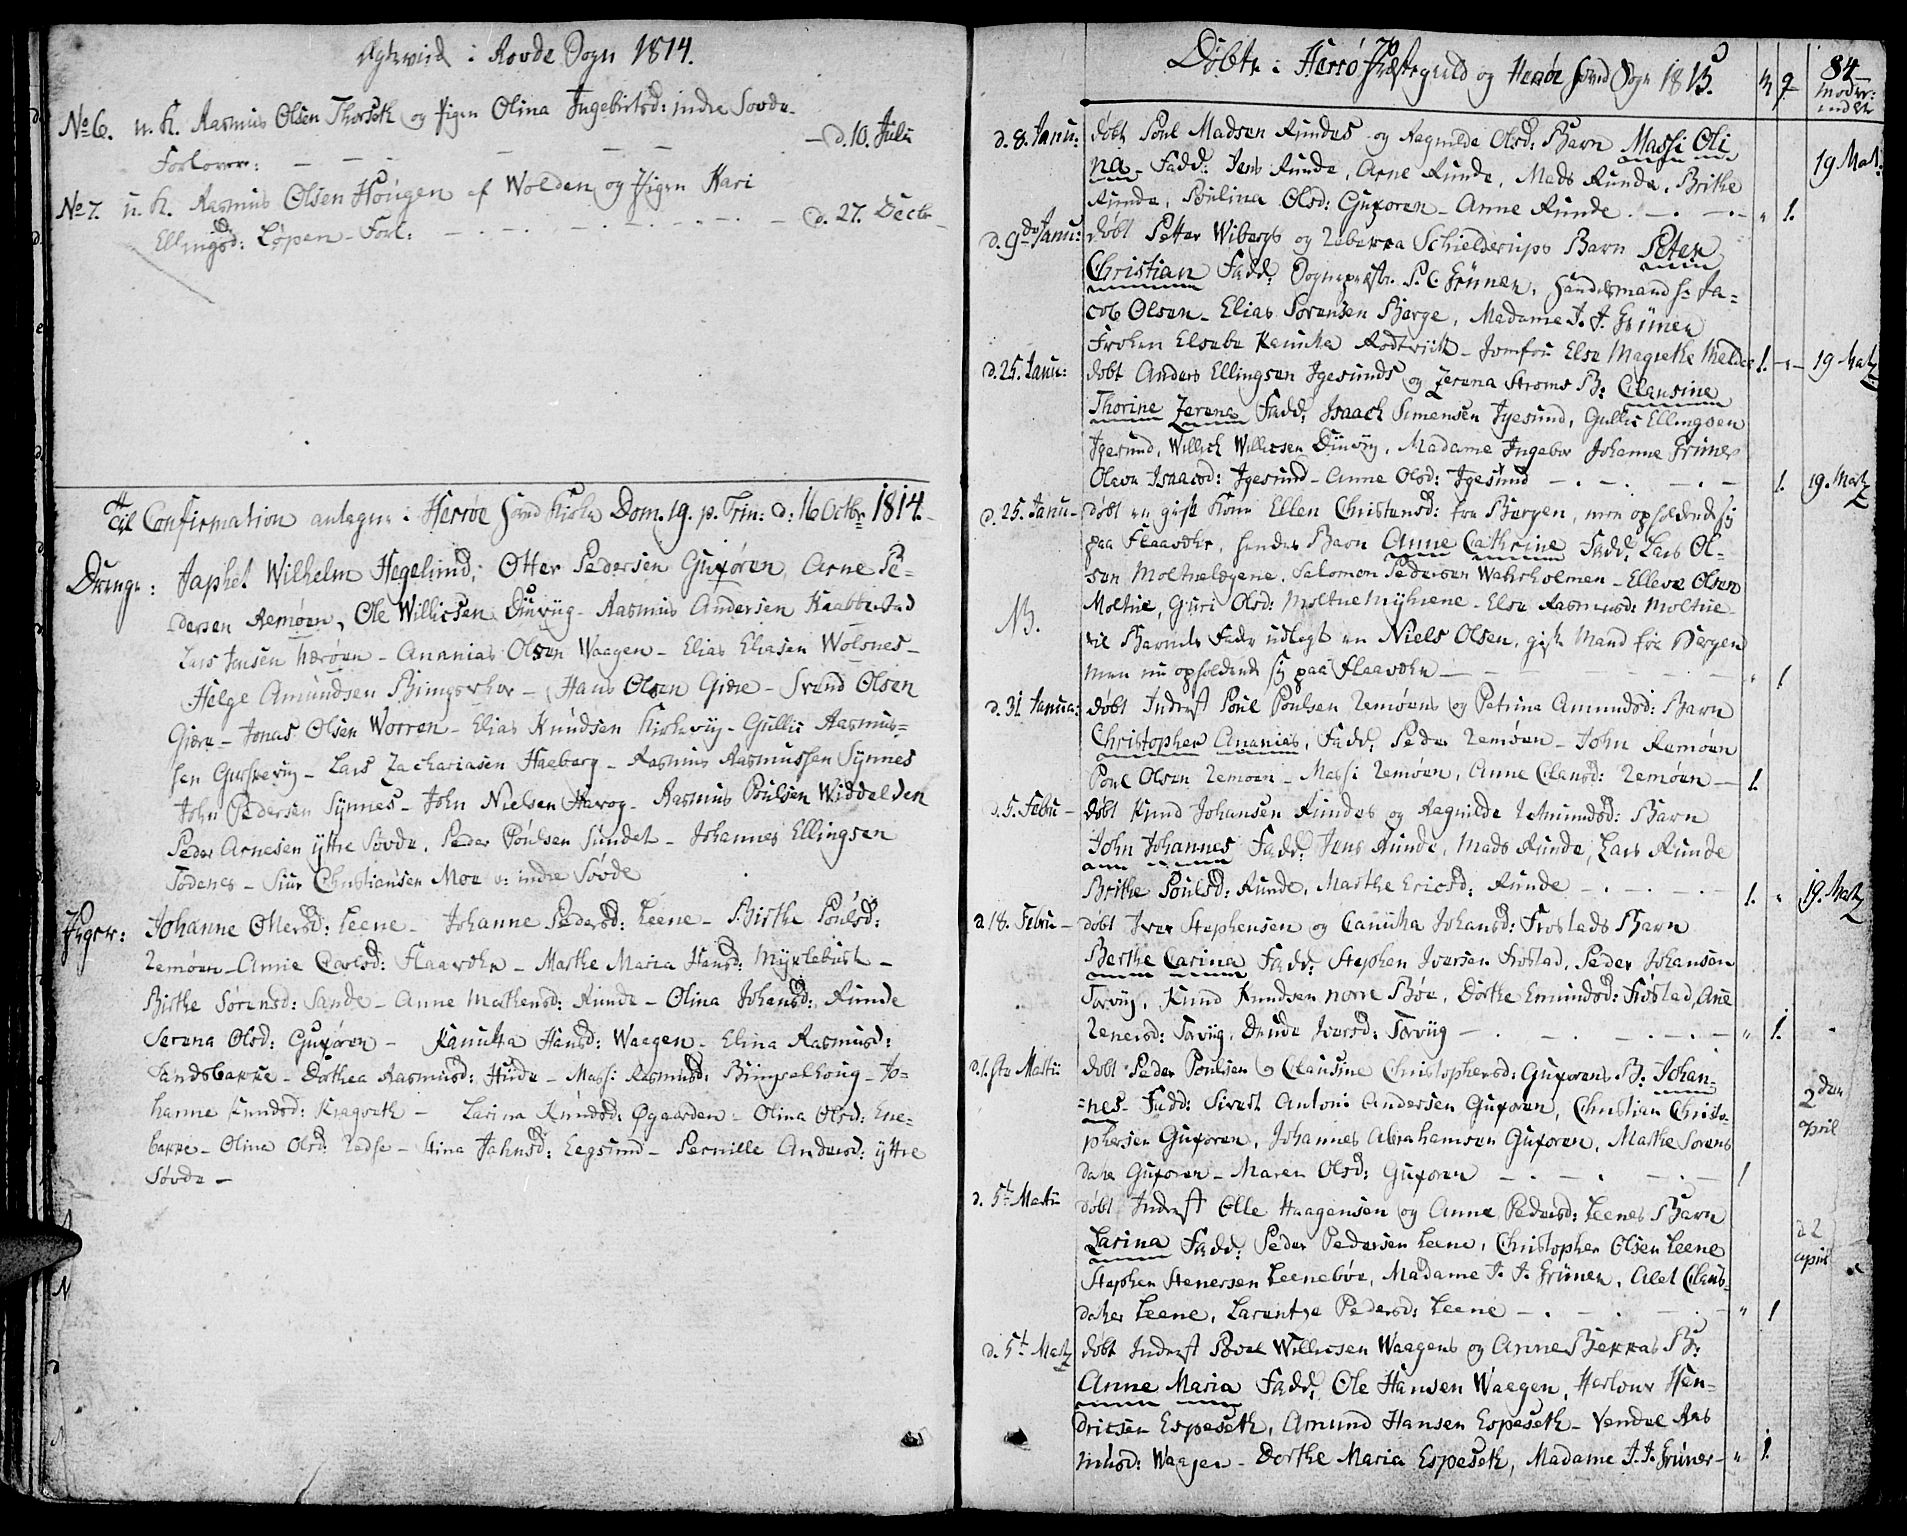 Ægteviede i Rovde Sogn 1814.
No 6. u. K. Rasmus Olsen Thorseth og Pigen Olina Ingebrtsd: indre Sovde
— d. 10. Juli
Forlovere: — — — — — —
No 7. u. K. Rasmus Olsen Hougen af Wolden og Pigen Kari
Ellingsd: Løpen — Forl: — . — . — . — d. 27. Decbr
Til Confirmation antagne i Herrøe Hoved Kirke Dom. 19. p. Trin: d: 16 Octbr 1814.
Drenge: Japhet Wilhelm Hegelund, Otter Pedersen Guxøren, Arne Pe-
dersen Remøen, Ole Willicsen Diuviig — Rasmus Andersen Kaabbestad
Lars Jensen Nærøen — Ananias Olsen Waagen — Elias Eliasen Wolsnes —
Helge Amundsen Bjingerhov — Hans Olsen Giære — Svend Olsen
Giære — Jonas Olsen Worren — Elias Knudsen Kirkeviig — Gullic Rasmus-
sen Gurskeviig — Lars Zachariasen Haaberg — Rasmus Rasmussen Synnes
John Pedersen Synnes — John Nielsen Havog — Rasmus Poulsen Widdelden
Peder Arnesen Yttre Søvde, Peder Poulsen Sundet — Johannes Ellingsen
Todenes — Siur Christiansen Moe v: indre Søvde
Piger: Johanne Ottersd: Leene — Johanne Pedersd: Leene — Birthe Poulsd:
Remøen — Anne Carlsd: Flaavær — Marthe Maria Hansd: Myxlebust —
Birthe Sørensd: Sande — Anne Mathensd: Runde — Olina Johansd: Runde
Serena Olsd: Guxøren — Kanutta Hansd: Waagen — Elina Rasmusd:
Sandsbakke — Dorthea Rasmusd: Hiude — Massi Rasmusd: Bringselhoug — Jo-
hanne Knudsd: Kragseth — Larina Knudsd: Øgaarden — Olina Olsd: Ene-
bakke — Olina Olsd: Radse — Stina Jahnsd: Eegsund — Pernille Andersd: yttre
Sovde —
Døbte i Herrø Præstegield og Herrøe Hoved Sogn 1815.
84
d. 8. Janu: døbt Poul Madsen Rundes og Ragnilde Olsd: Barn Massi Oli
na. Fadd: Jens Runde, Arne Runde, Mads Runde, Brithe
Runde, Poulina Olsd: Guxoren — Anne Runde. — . — . — „ 1.
19 Mart:
d. 9de Janu: døbt Petter Wibergs og Rebekka Schielderups Barn Peter
Christian Fadd: Sognepræst P. C. Grüner, Handelsmand Hr Ja-
cob Olsen — Elias Sørensen Berge, Madame J. J. Grüner
Frøken Elsebe Kanuka Rodtwitt — Jomfru Else Magrethe Meldal 1. — „ — 19 Martz
d. 25. Janu: døbt Anders Ellingsen Igesunds og Zerena Stroms B: Clausine
Thorine Zerena Fadd: Isaach Simensen Igesund, Gullic Ellingsen
Igesund, Willich Willicsen Diuviig, Madame Ingebor Johanne Grüner
Olava Isaacsd: Igesund — Anne Olsd: Igesund — . — . — . — 1. 19. Martz
d. 25. Janu — døbt en gift Kone Ellen Christensd: fra Bergen, men opholdende sig
paa Flaavær, hendes Barn Anne Cathrine Fadd: Lars Ol-
sen Moltuelegene, Salomon Pedersen Wahrholmen — Elleve Olsen
Moltue, Guri Olsd: Moltuemyhrene — Else Rasmusd: Moltue
NB. til Barnets Fader udlagt en Niels Olsen, gift Mand fra Bergen
men nu opholdende sig paa Flaavær — — — — — „ 1
d. 31 Janua: døbt Inderst Poul Poulsen Remøens og Petrina Amundsd: Barn
Christopher Ananias, Fadd: Peder Remøen — John Remøen
Poul Olsen Remoen — Massi Remøen, Anne Clausd: Remøen — 1.
d. 5. Febru — døbt Knud Johansen Rundes og Ragnilde Amundsd: Barn
John Johannes Fadd: Jens Runde, Mads Runde, Lars Runde
Brithe Poulsd: Runde, Marthe Ericsd: Runde — . — . — . — 1. „ 19. Martz
d. 18. Febru — døbt Iver Stephensen og Canutta Johansd: Frøstads Barn
Berthe Carina Fadd: Stephen Iversen Frøstad, Peder Johansen
Torviig, Knud Knudsen norre Bøe, Dorthe Emundsd: Frøstad, Ane
Renersd: Torviig, Drude Iversd: Torviig — . — . — „ 1.
d. 1ste Martii døbt Peder Poulsen og Clausine Christophersd: Guxorens B. Johan-
nes. Fadd: Sivert Antoni Andersen Guxoren, Christian Christo-
phersen Guxoren, Johannes Abrahamsen Guxoren, Marthe Sorens
dater Guxoren — Maren Olsd: Guxoren — . — . — . — 1
2den April
d. 5te Martii døbt Inderst Olle Haagensen og Anne Pedersd: Leenes Barn
Larina Fadd: Peder Pedersen Leene, Christopher Olsen Leene
Stephen Stenersen Leenebøe, Madame J. J. Grüner, Alet Claus-
dater Leene, Larentze Pedersd: Leene — . — . — „ 1
d 2 April
d. 5te Martz døbt Inderst Povel Willicsen Waagens og Anne Bekkas B:
Anne Maria Fadd: Ole Hansen Waagen, Herlour Hen-
dricsen Espeseth, Amund Hansen Espeseth — Vendel Ras
musd: Waagen — Dorthe Maria Espeseth, Madame J. J. Grüner — „ 1.